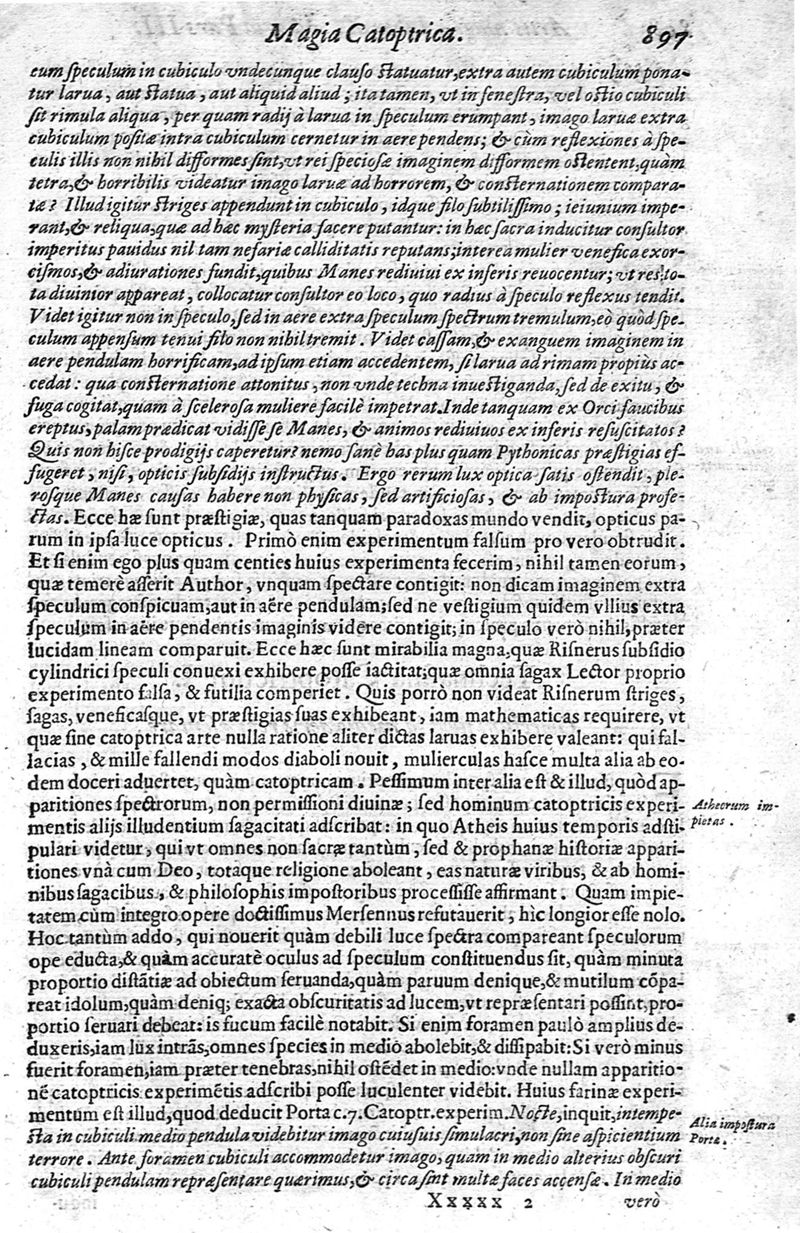 Magia Catoptrica. 897
eum ſpeculum in cubiculo vndecunque clauſo ſtatuatur, extra autem cubiculum pona-
tur larua, aut ſtatua, aut aliquid aliud; ita tamen, vt in feneſtra, vel oſtio cubiculi
ſit rimula aliqua, per quam radij à larua in ſpeculum erumpant, imago laruæ extra
cubiculum poſitæ intra cubiculum cernetur in aere pendens; & cùm reflexiones à ſpe-
culis illis non nihil difformes ſint, vt rei ſpecioſæ imaginem difformem oſtentent, quàm
tetra, & horribilis videatur imago laruæ ad horrorem, & conſternationem compara-
tæ? Illud igitur ſtriges appendunt in cubiculo, idque filo ſubtiliſſimo; ieiunium impe-
rant, & reliqua, quæ ad hæc myſteria facere putantur: in hæc ſacra inducitur conſultor
imperitus pauidus nil tam nefariæ calliditatis reputans; interea mulier venefica exor-
ciſmos, & adiurationes fundit, quibus Manes rediuiui ex inferis reuocentur; vt res to-
ta diuinior appareat, collocatur conſultor eo loco, quo radius à ſpeculo reflexus tendit.
Videt igitur non in ſpeculo, ſed in aere extra ſpeculum ſpectrum tremulum, eò quòd ſpe-
culum appenſum tenui filo non nihil tremit. Videt caſſam, & exanguem imaginem in
aere pendulam horrificam, ad ipſum etiam accedentem, ſi larua ad rimam propiùs ac-
cedat: qua conſternatione attonitus, non vnde techna inueſtiganda, ſed de exitu, &
fuga cogitat, quam à ſceleroſa muliere facilè impetrat. Inde tanquam ex Orci faucibus
ereptus, palam prædicat vidiſſe ſe Manes, & animos rediuiuos ex inferis reſuſcitatos?
Quis non hiſce prodigijs caperetur? nemo ſanè has plus quam Pythonicas præſtigias ef-
fugeret, niſi, opticis ſubſidijs inſtructus. Ergo rerum lux optica ſatis oſtendit, ple-
roſque Manes cauſas habere non phyſicas, ſed artificioſas, & ab impoſtura profe-
ctas. Ecce hæ ſunt præſtigiæ, quas tanquam paradoxas mundo vendit, opticus pa-
rum in ipſa luce opticus. Primò enim experimentum falſum pro vero obtrudit.
Et ſi enim ego plus quam centies huius experimenta fecerim, nihil tamen eorum,
quæ temerè aſſerit Author, vnquam ſpectare contigit: non dicam imaginem extra
ſpeculum conſpicuam, aut in aëre pendulam; ſed ne veſtigium quidem vllius extra
ſpeculum in aëre pendentis imaginis videre contigit; in ſpeculo verò nihil, præter
lucidam lineam comparuit. Ecce hæc ſunt mirabilia magna, quæ Riſnerus ſubſidio
cylindrici ſpeculi conuexi exhibere poſſe iactitat; quæ omnia ſagax Lector proprio
experimento falſa, & futilia comperiet. Quis porrò non videat Riſnerum ſtriges,
ſagas, veneficaſque, vt præſtigias ſuas exhibeant, iam mathematicas requirere, vt
quæ ſine catoptrica arte nulla ratione aliter dictas laruas exhibere valeant: qui fal-
lacias, & mille fallendi modos diaboli nouit, mulierculas haſce multa alia ab eo-
dem doceri aduertet, quàm catoptricam. Peſſimum inter alia eſt & illud, quòd ap-
paritiones ſpectrorum, non permiſſioni diuinæ; ſed hominum catoptricis experi-
mentis alijs illudentium ſagacitati adſcribat: in quo Atheis huius temporis adſti-
pulari videtur, qui vt omnes non ſacræ tantùm, ſed & prophanæ hiſtoriæ appari-
tiones vnà cum Deo, totaque religione aboleant, eas naturæ viribus, & ab homi-
nibus ſagacibus, & philoſophis impoſtoribus proceſſiſſe affirmant. Quam impie-
tatem cùm integro opere doctiſſimus Merſennus refutauerit, hic longior eſſe nolo.
Hoc tantùm addo, qui nouerit quàm debili luce ſpectra compareant ſpeculorum
ope educta, & quàm accuratè oculus ad ſpeculum conſtituendus ſit, quàm minuta
proportio diſtãtiæ ad obiectum ſeruanda, quàm paruum denique, & mutilum cõpa-
reat idolum, quàm deniq; exacta obſcuritatis ad lucem, vt repræſentari poſſint, pro-
portio ſeruari debeat: is fucum facilè notabit. Si enim foramen paulò amplius de-
duxeris, iam lux intrãs, omnes ſpecies in medio abolebit, & diſſipabit: Si verò minus
fuerit foramen, iam præter tenebras, nihil oſtẽdet in medio: vnde nullam apparitio-
nẽ catoptricis experimẽtis adſcribi poſſe luculenter videbit. Huius farinæ experi-
mentum eſt illud, quod deducit Porta c. 7. Catoptr. experim. Nocte, inquit, intempe-
ſta in cubiculi medio pendula videbitur imago cuiuſuis ſimulacri, non ſine aſpicientium
terrore. Ante foramen cubiculi accommodetur imago, quam in medio alterius obſcuri
cubiculi pendulam repræſentare quærimus, & circa ſint multæ faces accenſæ. In medio
Xxxxx 2 verò
Atheorum im-
pietas.
Alia impoſtura
Portæ.